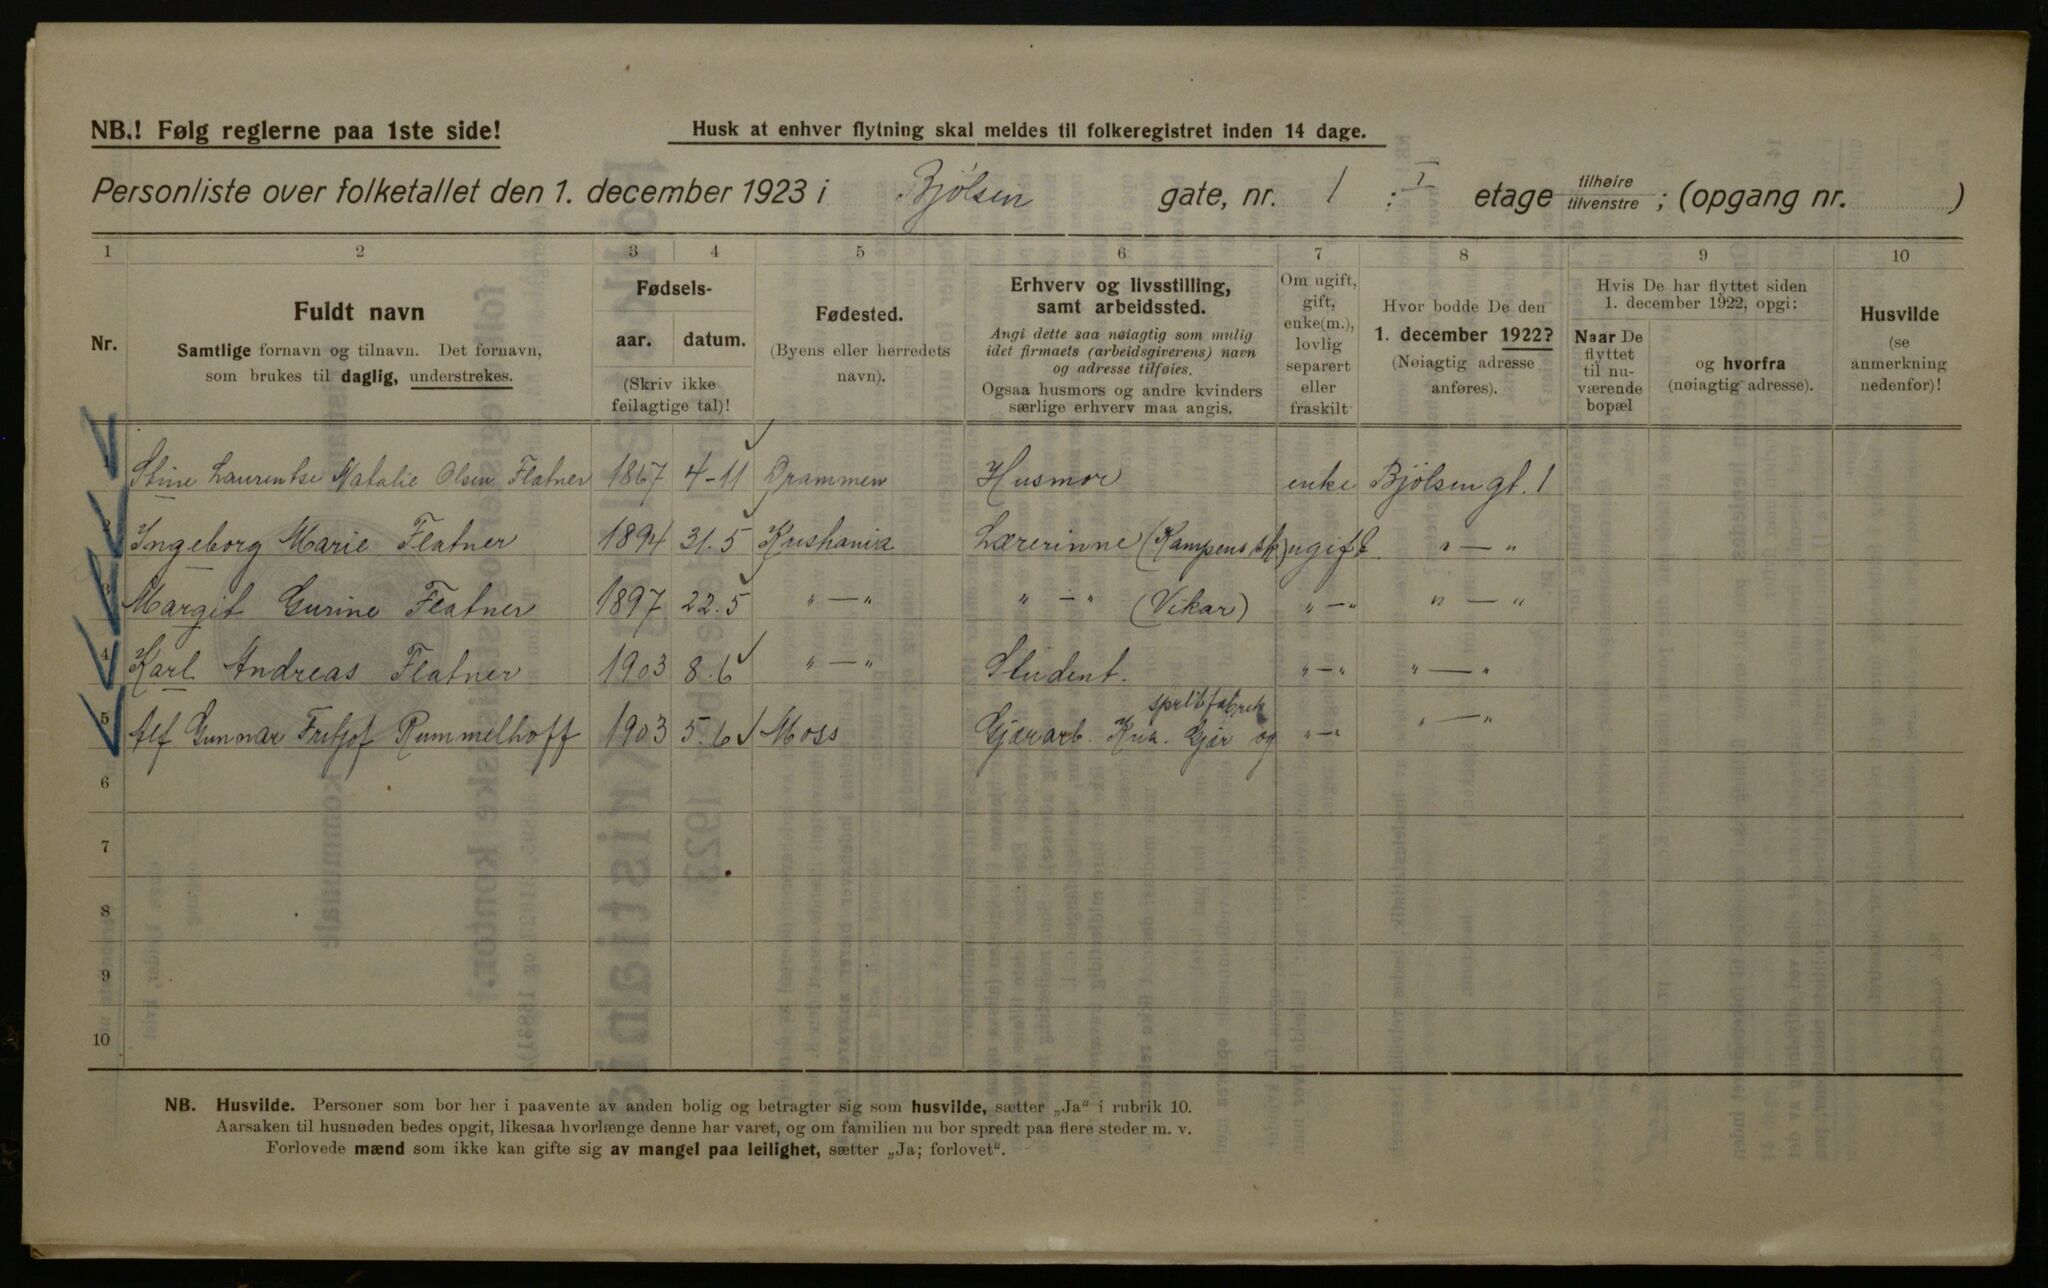 NB.! Følg reglerne paa 1ste side!
Husk at enhver flytning skal meldes til folkeregistret inden 14 dage.
Personliste over folketallet den 1. december 1923 i Bjølsen gate, nr. 1 ; I etage tilhøire tilvenstre ; (opgang nr. )
1 2 3 4 5 6 7 8 9 10
Nr.
Fuldt navn
Samtlige fornavn og tilnavn. Det fornavn,
som brukes til daglig, understrekes.
Fødsels-
aar. datum.
(Skriv ikke
feilagtige tal)!
Fødested.
(Byens eller herredets
navn).
Erhverv og livsstilling,
samt arbeidssted.
Angi dette saa nøiagtig som mulig
idet firmaets (arbeidsgiverens) navn
og adresse tilføies.
Ogsaa husmors og andre kvinders
særlige erhverv maa angis.
Om ugift,
gift,
enke(m.),
lovlig
separert
eller
fraskilt
Hvor bodde De den
1. december 1922?
(Nøiagtig adresse
anføres).
Hvis De har flyttet siden
1. december 1922, opgi:
Naar De
flyttet
til nu-
værende
bopæl
og hvorfra
(nøiagtig adresse).
Husvilde
(se
anmerkning
nedenfor)!
1 Stine Laurentse Natalie Olsen Flatner 1867 4-11 Drammen Husmor enke Bjølsengt. 1
2 Ingeborg Marie Flatner 1894 31.5 Kristiania Lærerinne (Kampens sk) ugift " — "
3 Margit Gurine Flatner 1897 22.5 " — " " — " (Vikar) " — " " — "
4 Karl Andreas Flatner 1903 8.6 " — " Student. " — " " — "
spritfabrik
5 Alf Gunnar Fritjof Rummelhoff 1903 5.6 Moss Gjærarb. Kra. Gjær og " — " " — "
6
7
8
9
10
NB. Husvilde. Personer som bor her i paavente av anden bolig og betragter sig som husvilde, sætter „Ja“ i rubrik 10.
Aarsaken til husnøden bedes opgit, likesaa hvorlænge denne har varet, og om familien nu bor spredt paa flere steder m. v.
Forlovede mænd som ikke kan gifte sig av mangel paa leilighet, sætter „Ja; forlovet“.